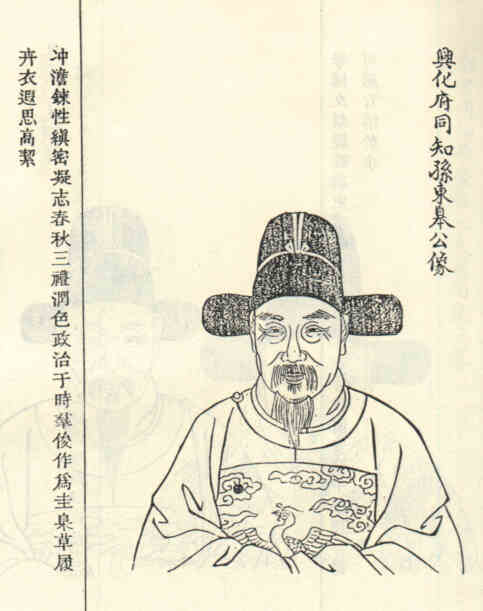 興化府同知孫東皋公像
冲澹鍊性縝密凝志春秋三禮潤色政治于時羣俊作爲圭臬草履
卉衣遐思高絜